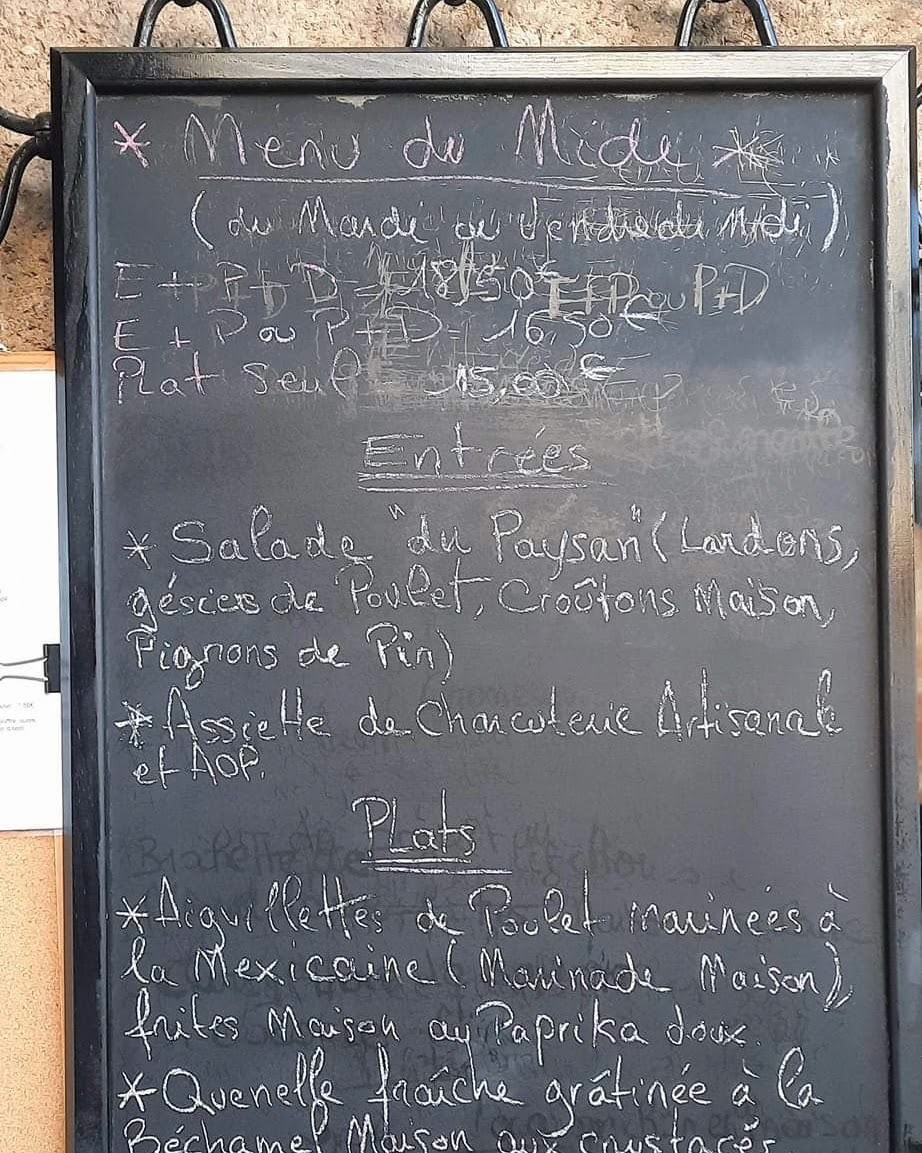 * Menu du Midi *
(du Mardi au Vendredi Midi)
E + P + D = 18,50€
E + P ou P + D = 16,50€
Plat seul 15,00€
Entrées
* Salade "du Paysan" (Lardons,
gésiers de Poulet, Croûtons Maison,
Pignons de Pin)
* Assiette de Charcuterie Artisanale
et AOP.
Plats
* Aiguillettes de Poulet marinées à
la Mexicaine (Marinade Maison),
frites Maison au Paprika doux.
* Quenelle fraîche grâtinée à la
Béchamel Maison aux crustacés